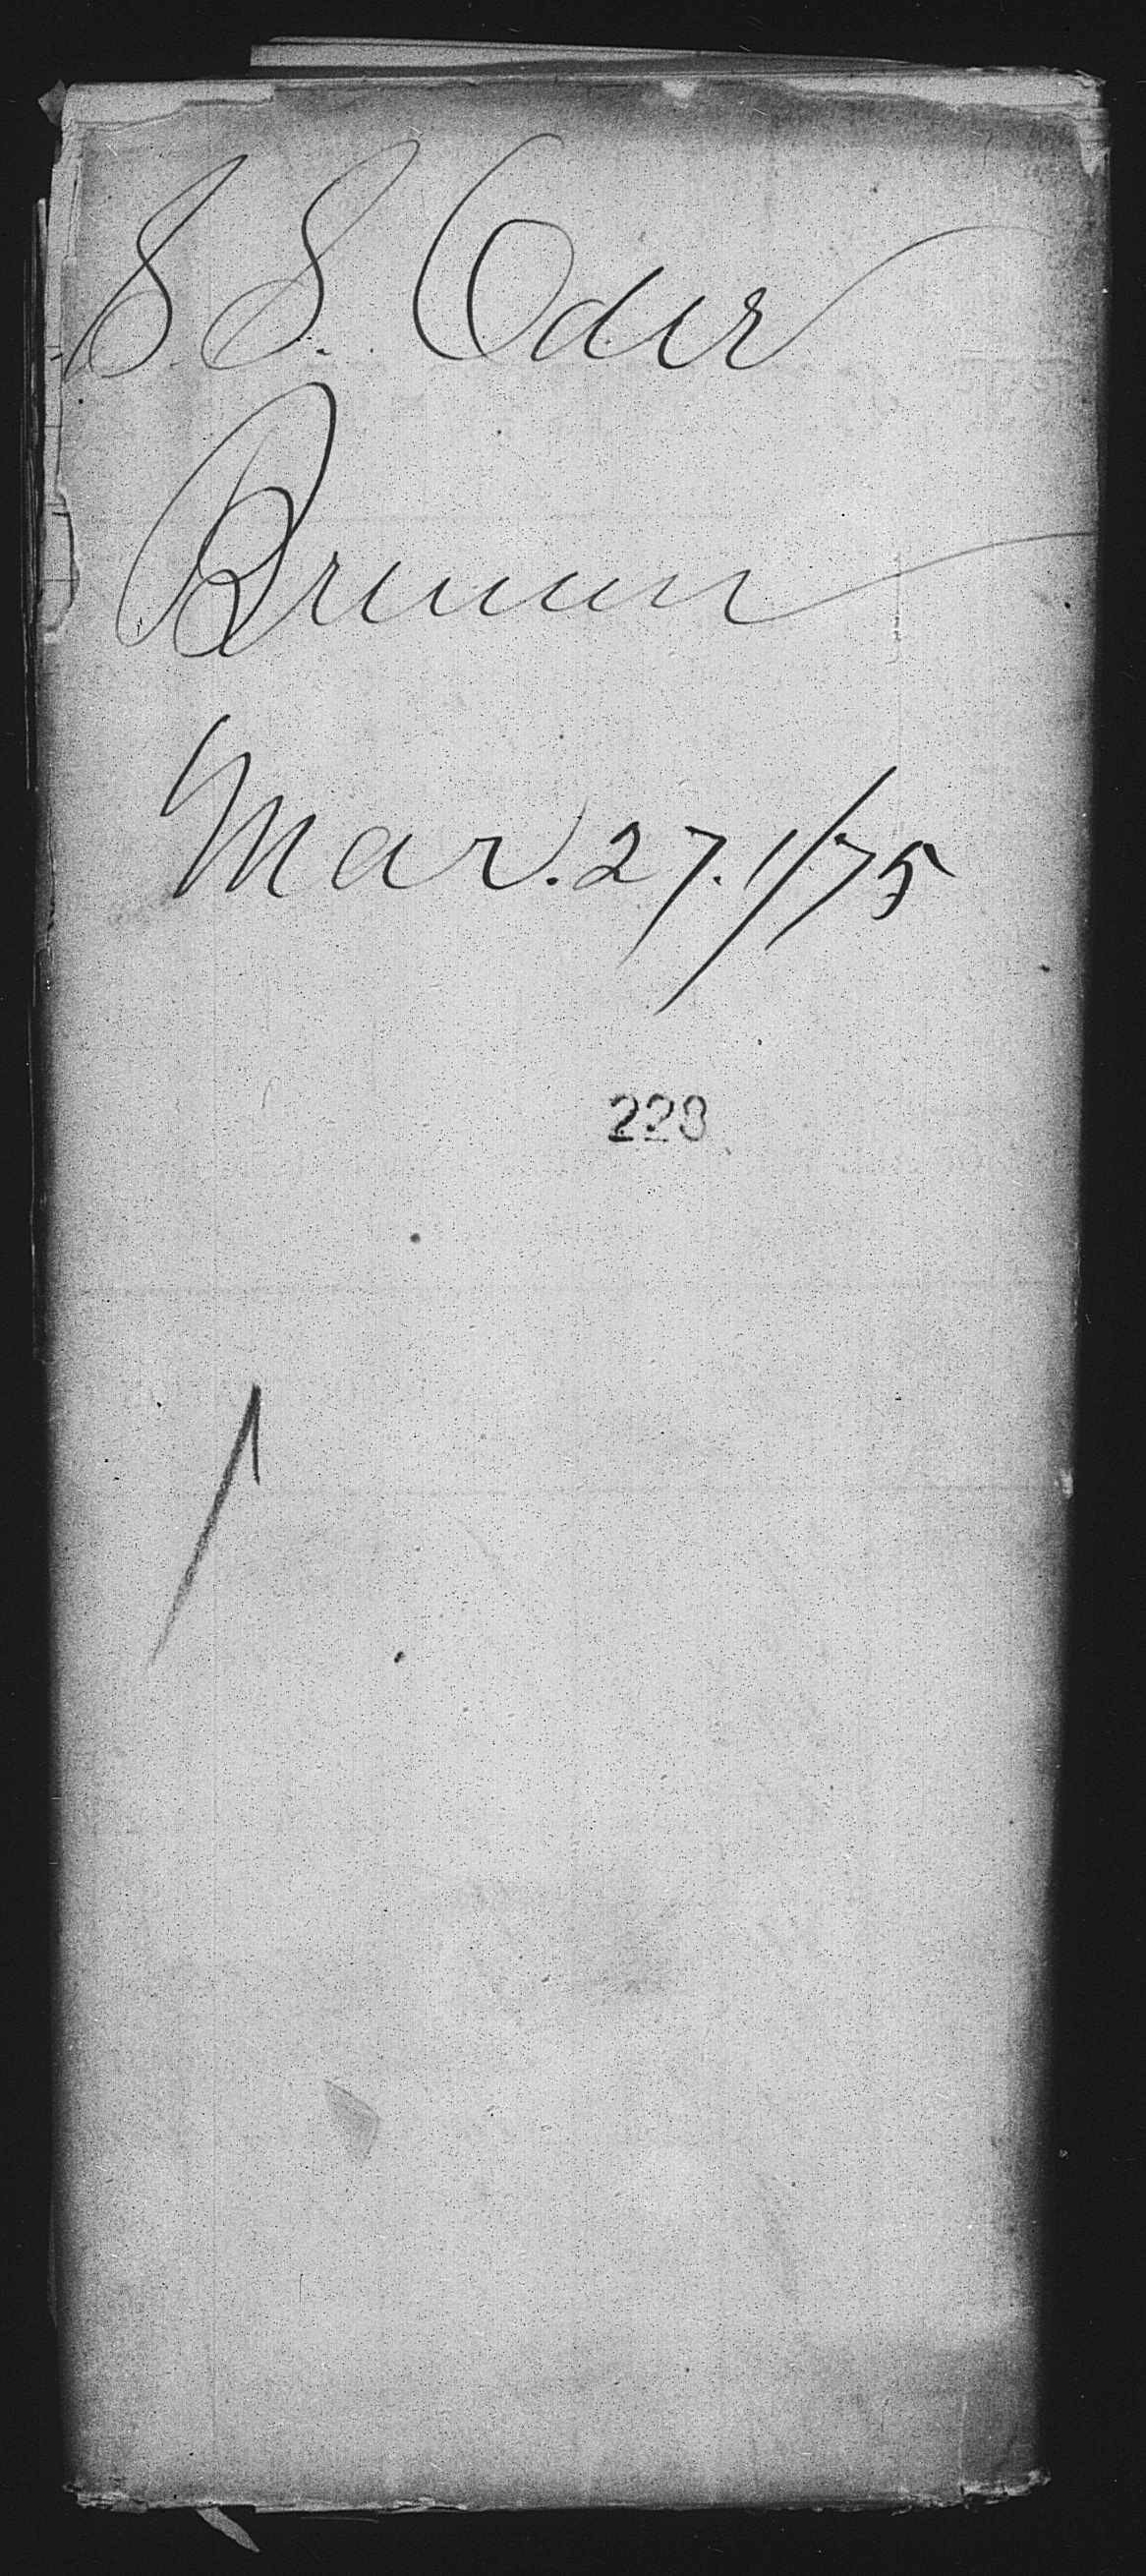 S.S. Oder
Bremen
Mar. 27. 1/75
228